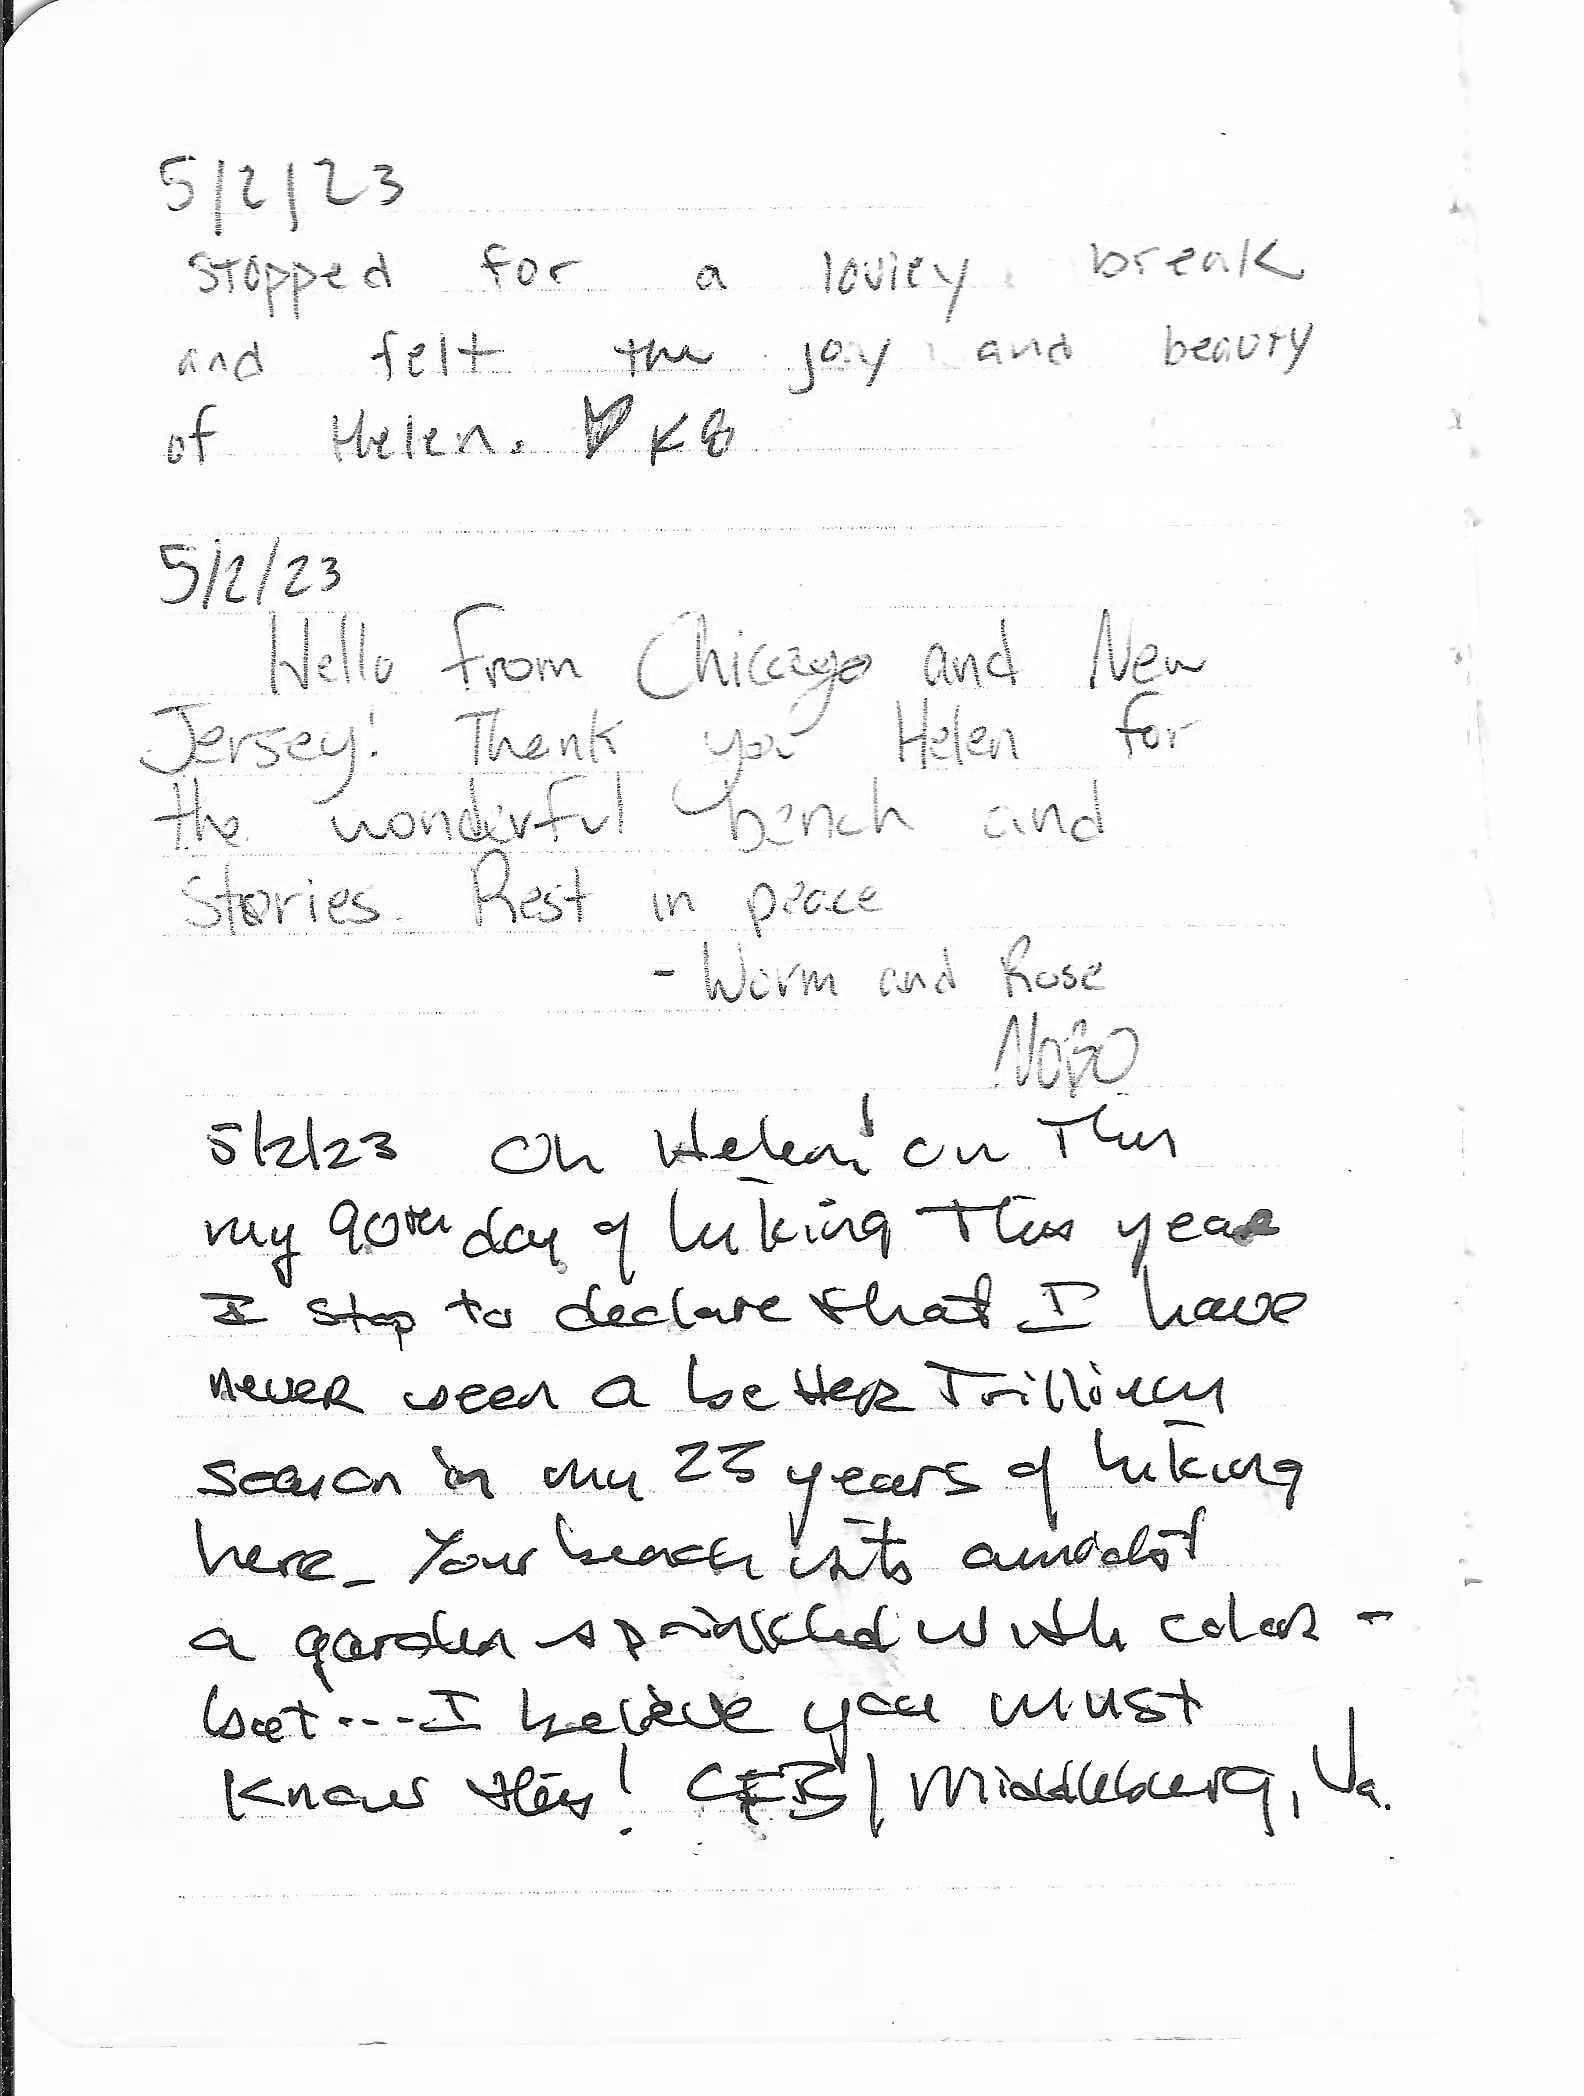 5/2/23
Stopped for a loviey break
and felt the joy and beauty
of Helen. K8
5/2/23
Hello from Chicago and New
Jersey! Thank you Helen for
the wonderful bench and
Stories. Rest in peace
- Worm and Rose
NOBO
5/2/23 Oh Helen! On This
my 90th day of hiking This year
I stop to declare that I have
never seen a better Trillium
season in my 23 years of hiking
here_ Your bench sits amidst
a garden sprinkled with color -
but ... I believe you must
know this! CFB/Middleburg, Va.